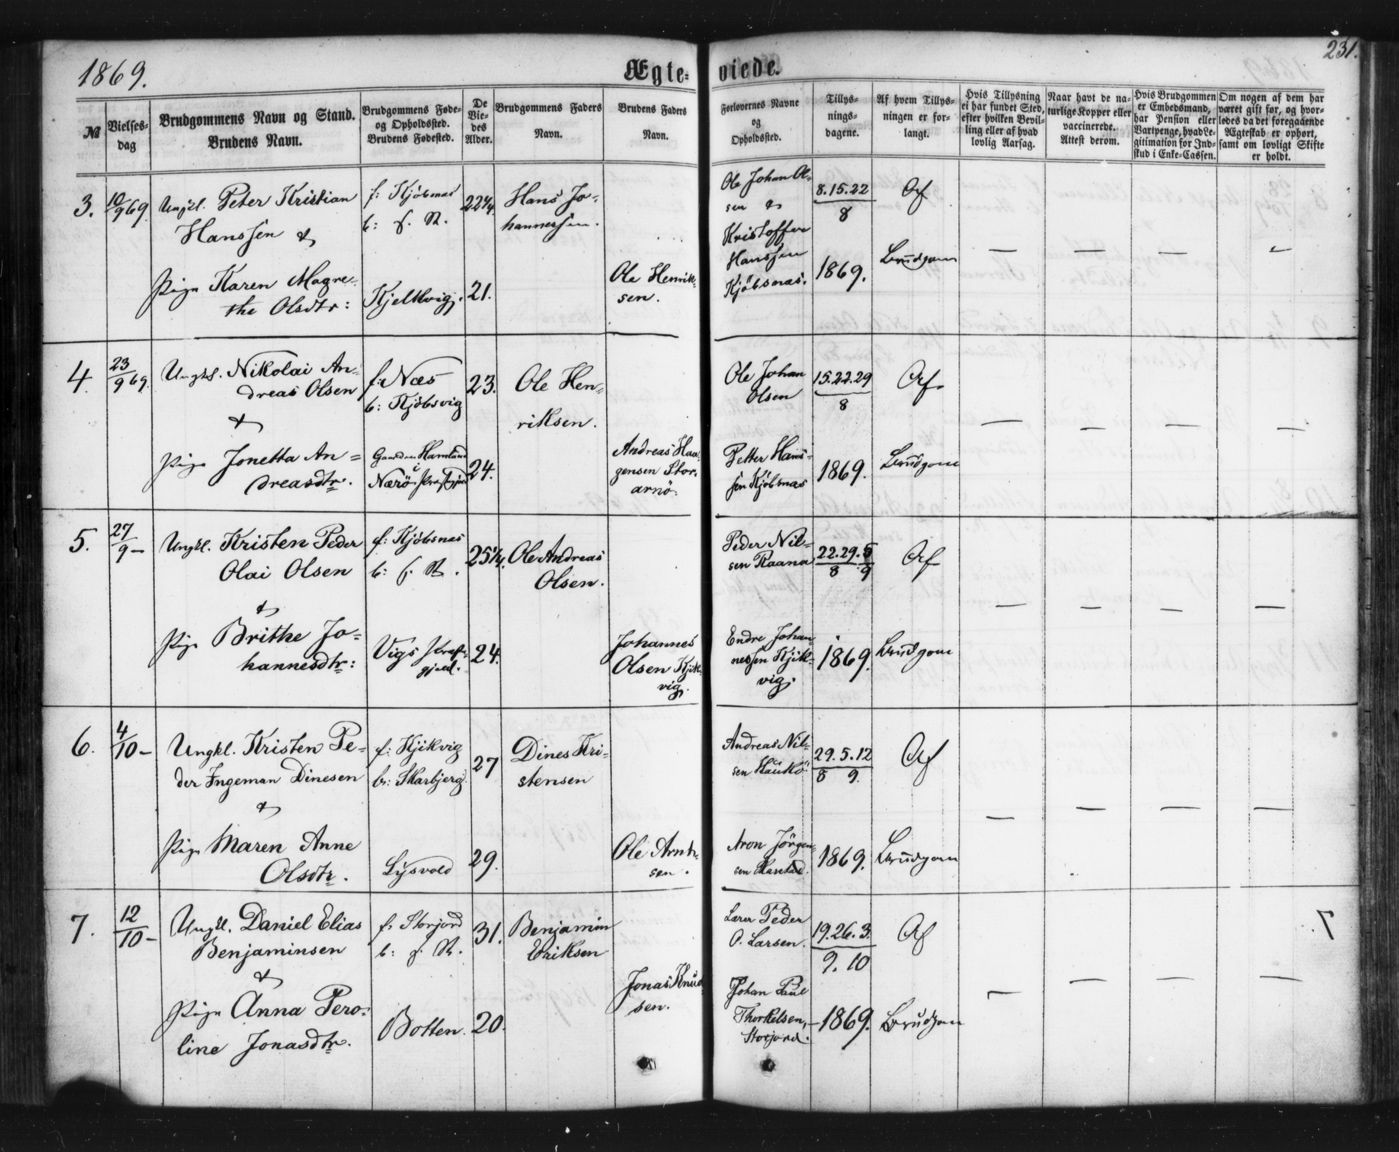 1869.
Ægte-
viede.
231.
№
Vielses-
dag
Brudgommens Navn og Stand.
Brudens Navn.
Brudgommens Føde-
og Opholdssted.
Brudens Fødested.
De
Vie-
des
Alder.
Brudgommens Faders
Navn.
Brudens Faders
Navn.
Forlovernes Navne
og
Opholdssted.
Tillys-
nings-
dagene.
Af hvem Tillys-
ningen er for-
langt.
Hvis Tillysning
ei har fundet Sted,
efter hvilken Bevil-
ling eller af hvad
lovlig Aarsag.
Naar havt de na-
turlige Kopper eller
vaccinerede.
Attest derom.
Hvis Brudgommen
er Embedsmand,
har Pension eller
Vartpenge, hvad Le-
gitimation for Ind-
skud i Enke-Cassen.
Om nogen af dem har
været gift før, og hvor-
ledes da det foregaaende
Ægteskab er ophørt,
samt om lovligt Skifte
er holdt.
3.
10/9 69.
Ungkl. Peter Kristian
Hanssen &
Pige Karen Magre-
the Olsdtr:
f: Kjöbsnæs
b: s. St.
Kjelkvig.
22¼
21.
Hans Jo-
hannessen.
Ole Henrik-
sen.
Ole Johan Ol-
sen &
Kristoffer
Hanssen
Kjöbsnæs.
8.15.22
8
1869.
Af
Brudgom
4.
23/9 69.
Ungkl. Nikolai An-
dreas Olsen
&
Pige Jonetta An-
dreasdtr.
f: Næs
b: Kjöbsvig
Gaarden Hamland
i
Nærö Præstegjeld
23.
24.
Ole Hen-
riksen.
Andreas Haa-
gensen Stor-
arnö.
Ole Johan
Olsen
Petter Hans-
sen Kjöbsnæs
15.22.29
8
1869.
Af
Brudgom
5.
27/9 -
Ungkl. Kristen Peder
Olai Olsen
&
Pige Brithe Jo-
hannesdtr:
f: Kjöbsnæs
b: s. St.
Vigs Præste-
gjeld.
25¼.
24.
Ole Andreas
Olsen.
Johannes
Olsen Kjik-
vig.
Peder Nil-
sen Raana
Endre Johan
nessen Kjik-
vig.
22.29.5
8 9
1869.
Af
Brudgom
6.
4/10 -
Ungkl. Kristen Pe-
der Ingeman Dinesen
&
Pige Maren Anne
Olsdtr.
f: Kjikvig
b: Skarbjerg
Lysvold
27
29.
Dines Kri-
stensen
Ole Arnt-
sen.
Andreas Nil-
sen Haukö
Aron Jörgen-
sen
29.5.12
8 9.
1869.
Af
Brudgom
7.
12/10 -
Ungkl. Daniel Elias
Benjaminsen
&
Pige Anna Pero-
line Jonasdtr.
f: Storjord
b: s. St.
Botten.
31.
20.
Benjamin
Eriksen
Jonas Knud-
sen.
Lærer Peder
O. Larsen.
Johan Paul
Thorkelsen,
Storjord.
19.26.3.
9. 10
1869.
Af
Brudgom